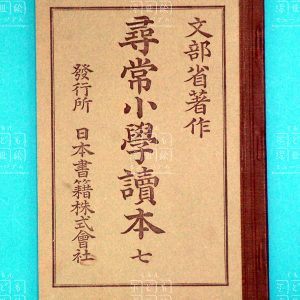 文部省著作
尋常小學讀本 七
發行所 日本書籍株式會社